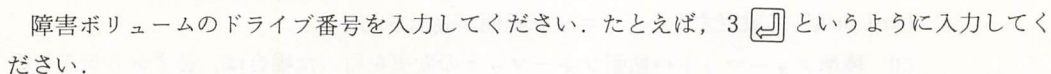 障害ボリュームのドライブ番号を入力してください．たとえば，3 ⏎ というように入力してく
ださい．